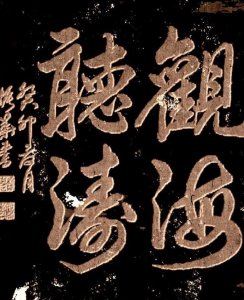 觀海
聽濤
癸卯春月